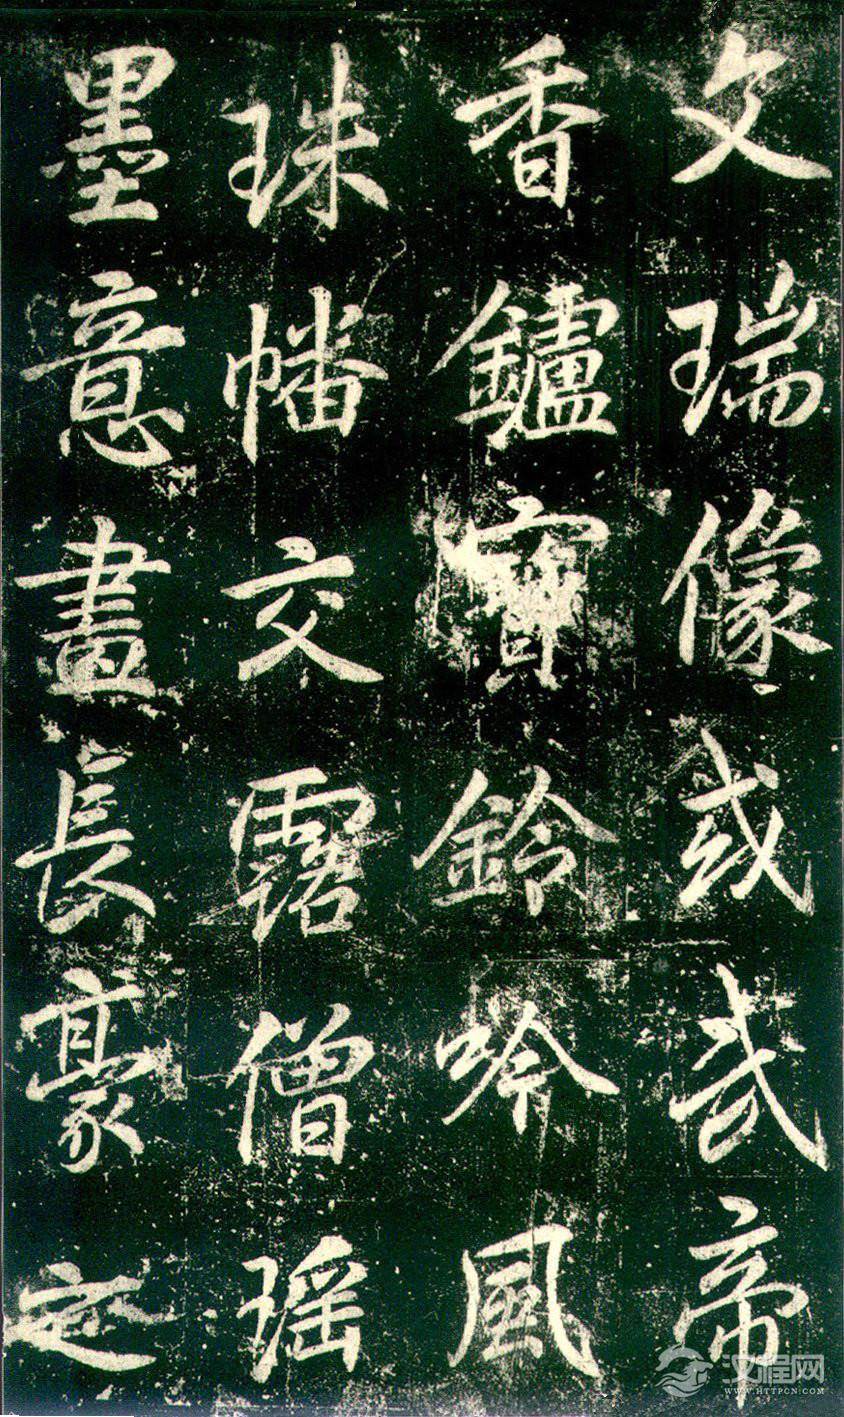 文瑞像或武帝
香鑪寶鈴吟風
珠幡交露僧瑶
墨意畫長豪
汉程网
WWW.HTTPCN.COM